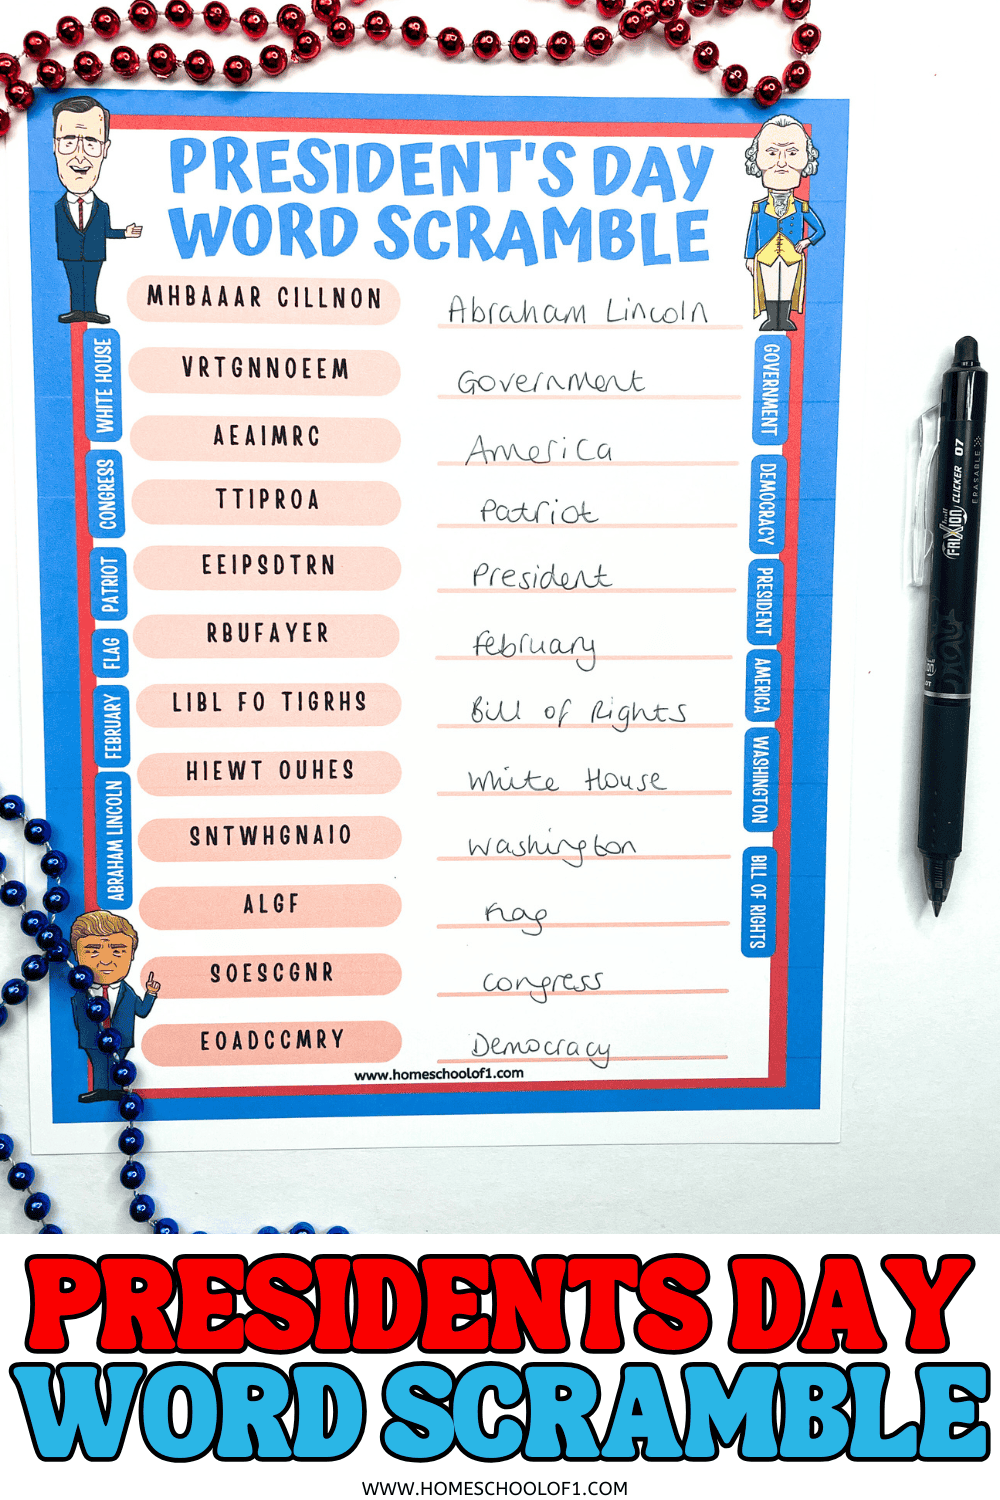 PRESIDENT'S DAY
WORD SCRAMBLE
MHBAAAR CILLNON
Abraham Lincoln
VRTGNNOEEM
Government
AEAIMRC
America
TTIPROA
Patriot
EEIPSDTRN
President
RBUFAYER
February
LIBL FO TIGRHS
Bill of Rights
HIEWT OUHES
White House
SNTWHGNAIO
Washington
ALGF
Flag
SOESCGNR
Congress
EOADCCMRY
Democracy
www.homeschoolof1.com
WHITE HOUSE
CONGRESS
PATRIOT
FLAG
FEBRUARY
ABRAHAM LINCOLN
GOVERNMENT
DEMOCRACY
PRESIDENT
AMERICA
WASHINGTON
BILL OF RIGHTS
FRIXION CLICKER 07
ERASABLE
PRESIDENTS DAY
WORD SCRAMBLE
WWW.HOMESCHOOLOF1.COM